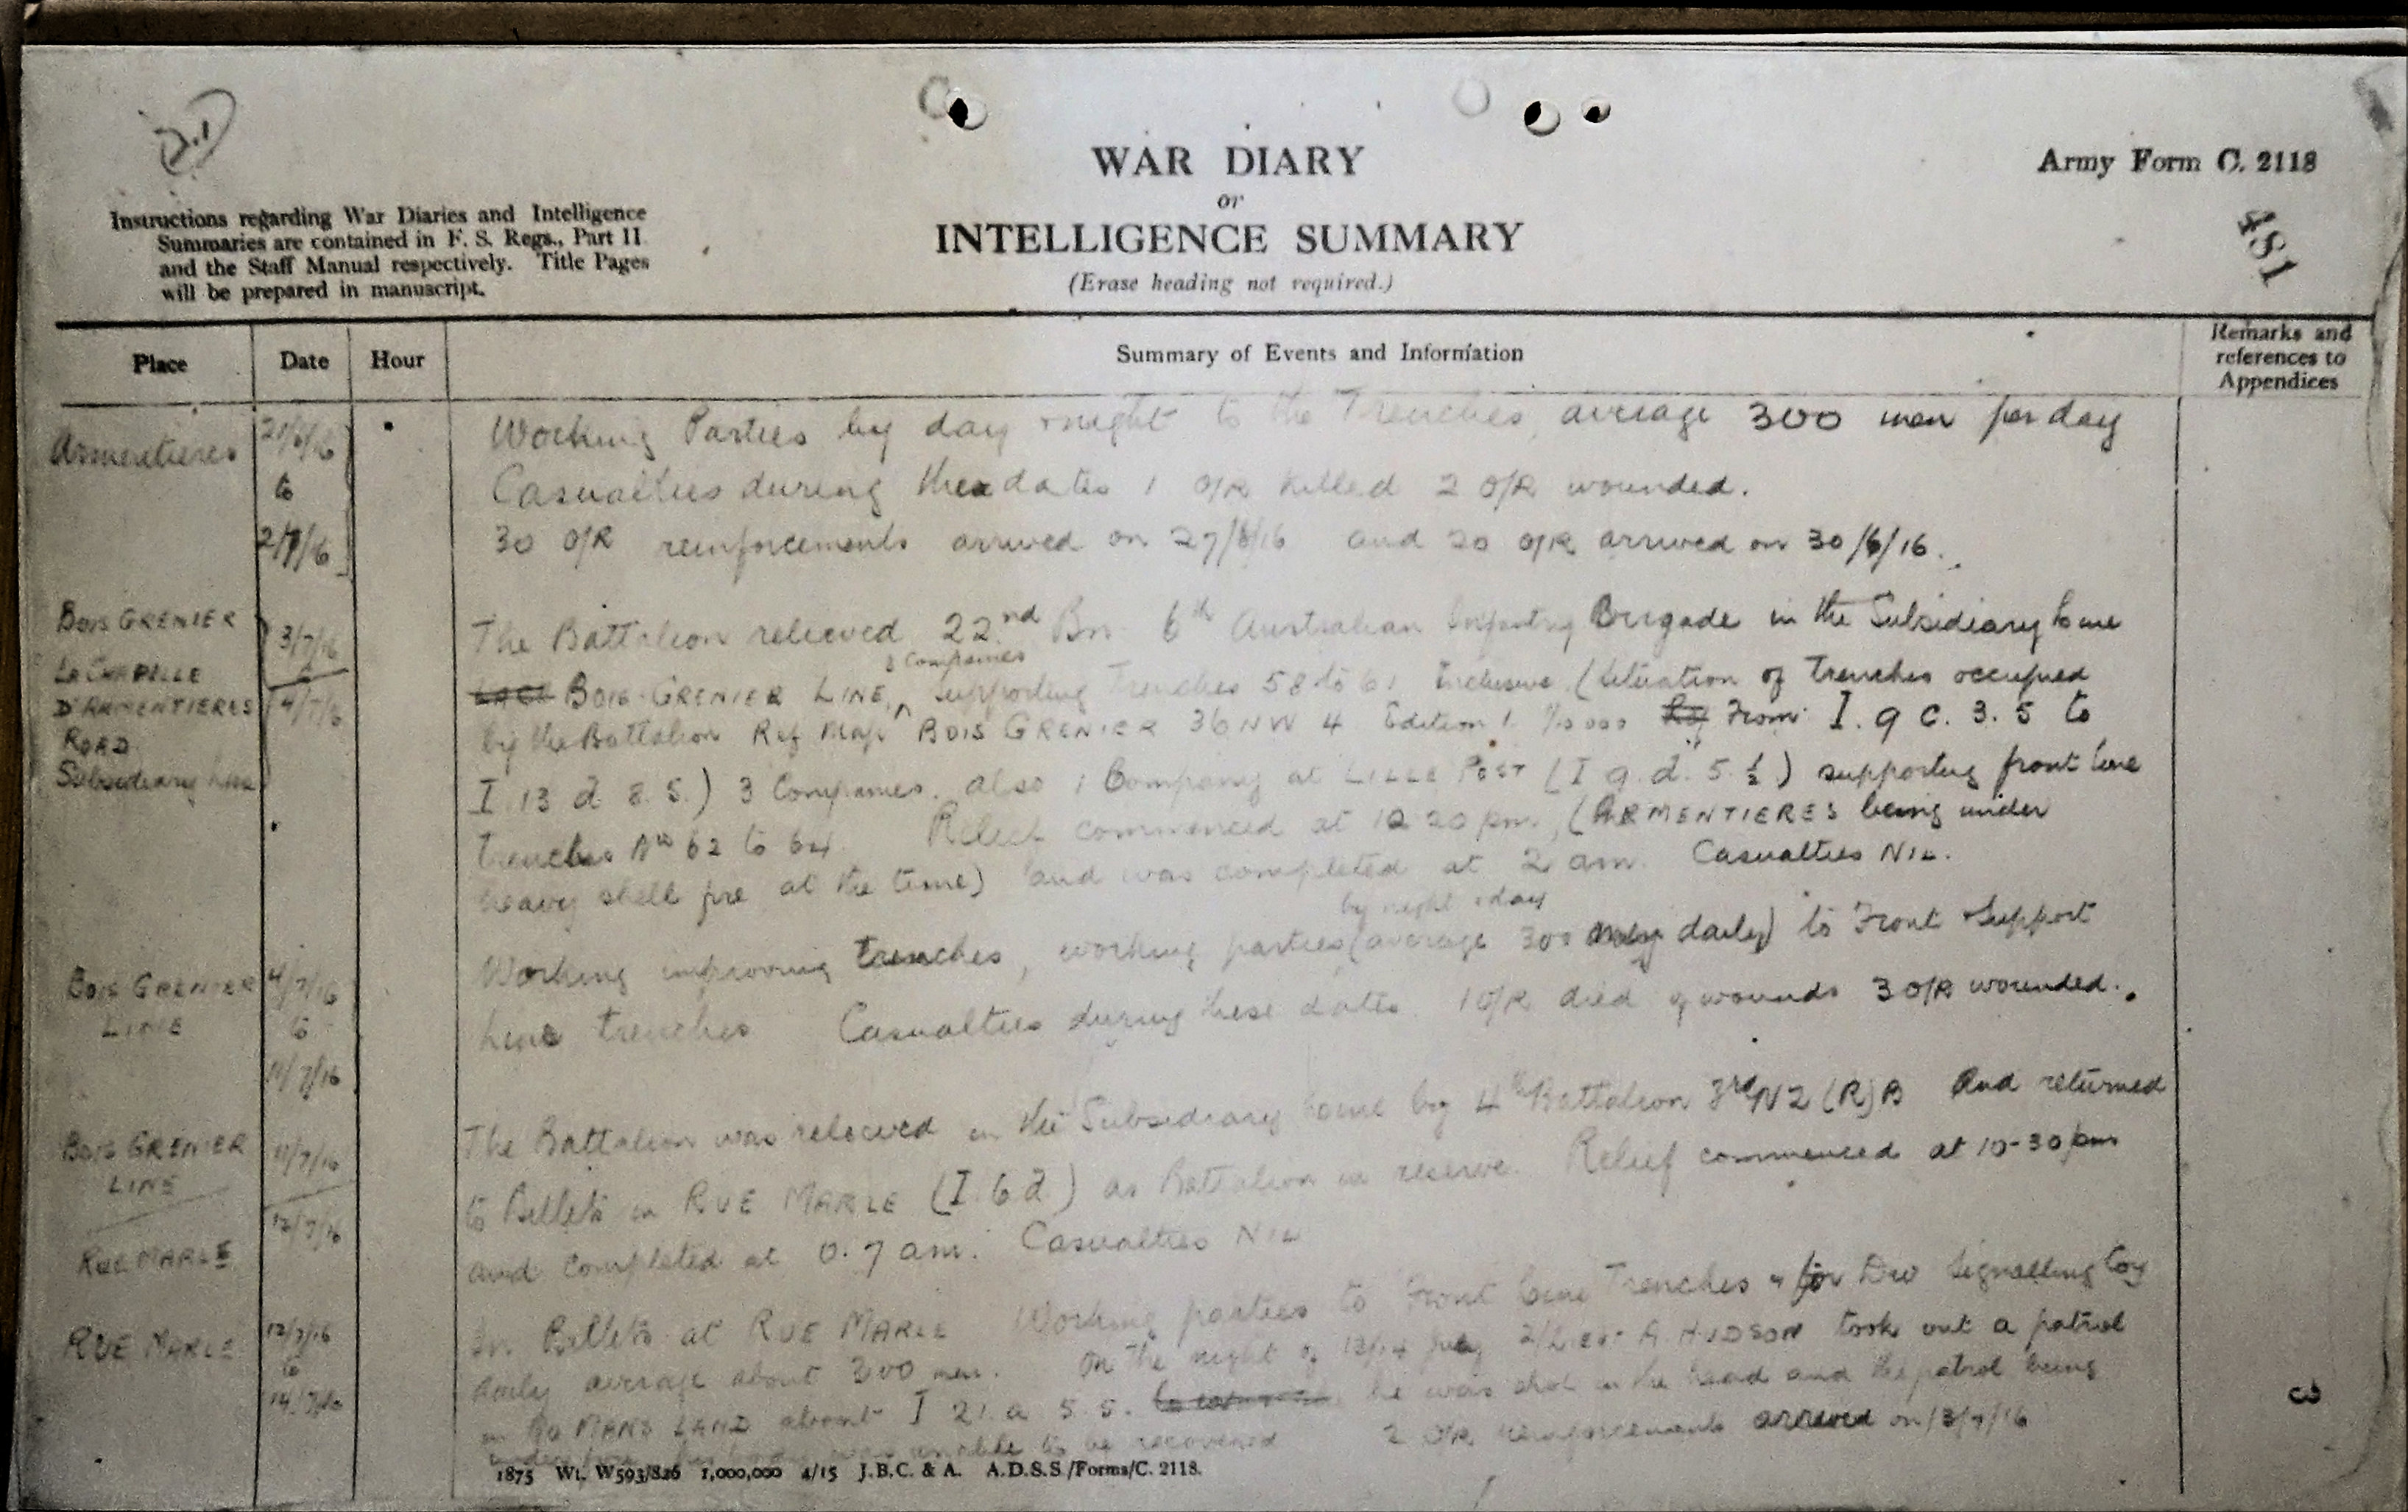 2.1
WAR DIARY
or
INTELLIGENCE SUMMARY
(Erase heading not required.)
Army Form C. 2118
481
Instructions regarding War Diaries and Intelligence
Summaries are contained in F. S. Regs., Part II
and the Staff Manual respectively. Title Pages
will be prepared in manuscript.
Place Date Hour Summary of Events and Information Remarks and references to Appendices
Armentieres 21/6/16 Working Parties by day & night to the Trenches, average 300 men per day
to Casualties during these dates 1 O/R killed 2 O/R wounded.
2/7/16 30 O/R reinforcements arrived on 27/6/16 and 20 O/R arrived on 30/6/16.
BOIS GRENIER 3/7/16 The Battalion relieved 22nd Bn 6th Australian Infantry Brigade in the Subsidiary Line
3 Companies
LA CHAPELLE BOIS-GRENIER LINE, supporting Trenches 58 to 61 Inclusive (Situation of Trenches occupied
D'ARMENTIERES 4/7/16 by the Battalion Ref Map BOIS GRENIER 36 NW 4 Edition 1. From I. 9 C. 3. 5 to
ROAD
Subsidiary Line I 13 d 8. 5.) 3 Companies. also 1 Company at LILLE POST (I 9. d. 5. ½) supporting front line
trenches Nos 62 to 64. Relief commenced at 10 20 pm. (ARMENTIERES being under
heavy shell fire at the time) and was completed at 2 am. Casualties NIL.
by night & day
BOIS GRENIER 4/7/16 Working improving trenches, working parties (average 300 daily) to Front & Support
LINE to Line trenches Casualties during these dates. 1 O/R died of wounds 3 O/R wounded.
11/7/16
BOIS GRENIER 11/7/16 The Battalion was relieved in the Subsidiary Line by 4th Battalion 3rd NZ (R) B and returned
LINE to Billets in RUE MARLE (I. 6 d.) as Battalion in reserve. Relief commenced at 10-30 pm
RUE MARLE 12/7/16 and completed at 0.7 am. Casualties NIL
RUE MARLE 12/7/16 In Billets at RUE MARLE Working parties to Front Line Trenches & for Div Signalling Coy
to daily average about 300 men. On the night of 13/14 July 2/Lieut A. HUDSON took out a patrol
14/7/16 in No MANS LAND about I 21. a 5. 5. he was shot in the head and the patrol being
was unable to be recovered 2 O/R reinforcements arrived on 13/7/16
1875 Wt. W593/826 1,000,000 4/15 J.B.C. & A. A.D.S.S./Forms/C. 2118.
3